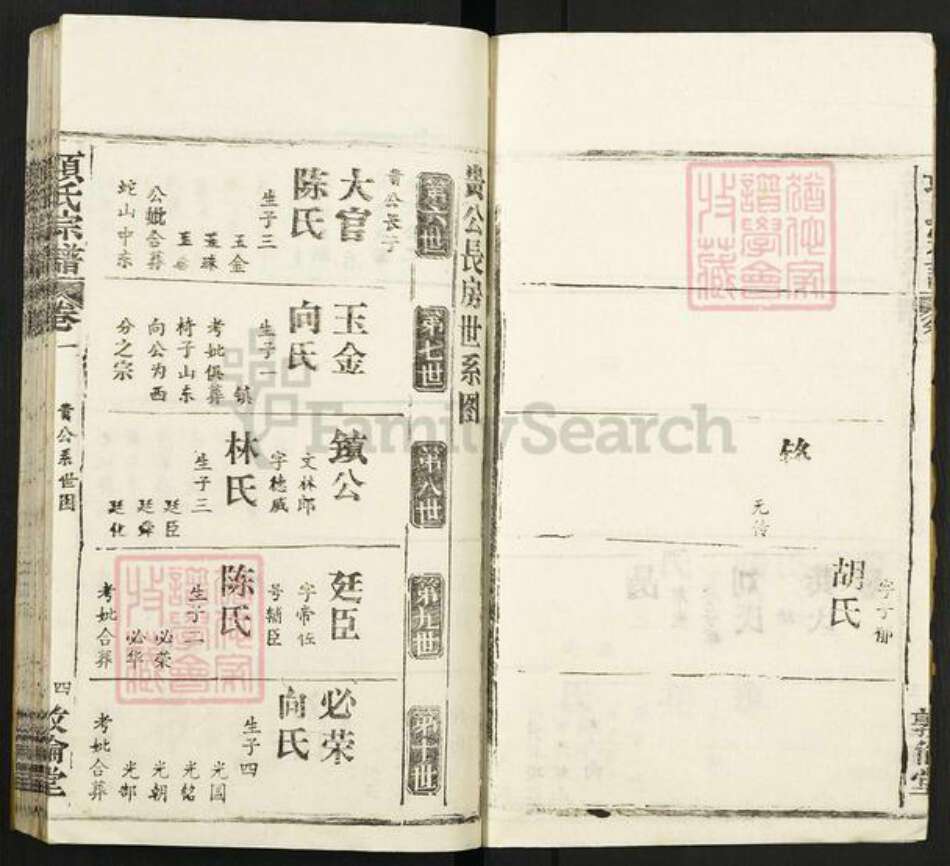 钦
元传
字子柳
胡氏
敦伦堂
贵公长房世系图
第六世
贵公长子
大官
陈氏
生子三
玉金
公妣合葬
蛇山中东
第七世
玉金
向氏
生子一
镇
考妣俱葬
椅子山东
向公为西
分之宗
第八世
镇公
文林郎
字德威
林氏
生子三
廷臣
廷舜
廷化
第九世
廷臣
字帝佐
号辅臣
陈氏
生子二
必荣
必华
考妣合葬
第十世
必荣
向氏
生子四
光国
光铭
光朝
光郜
考妣合葬
项氏宗谱
卷一
贵公系世图
四
敦伦堂
谱学会
收藏
FamilySearch